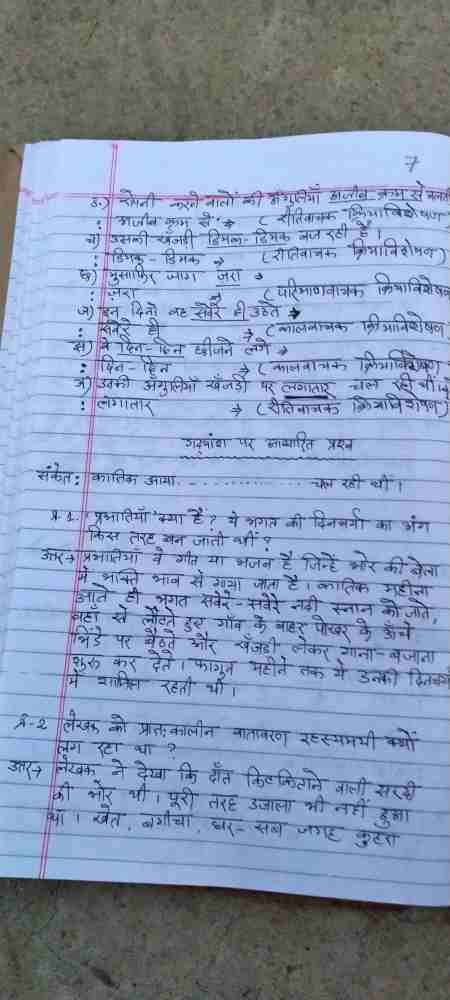 7
ड.) रोपनी करने वालों की अंगुलियाँ अजीब क्रम से चलने
: अजीब क्रम से → (रीतिवाचक क्रियाविशेषण)
च) उसकी खँजड़ी डिमक-डिमक बज रही है।
: डिमक-डिमक → (रीतिवाचक क्रियाविशेषण)
छ) मुसाफिर जाग जरा →
: जरा → (परिमाणवाचक क्रियाविशेषण
ज) इन दिनों वह सवेरे ही उठते →
: सवेरे ही → (कालवाचक क्रियाविशेषण
झ) वे दिन-दिन छीजने लगे →
: दिन-दिन → (कालवाचक क्रियाविशेषण
ञ) उनकी अंगुलियाँ खँजड़ी पर लगातार चल रही थीं।
: लगातार → (रीतिवाचक क्रियाविशेषण)
गद्यांश पर आधारित प्रश्न
संकेत: कातिक आया................ चल रही थीं।
प्र-1. प्रभातियाँ क्या है? ये भगत की दिनचर्या का अंग
किस तरह बन जाती थीं?
उत्तर→ प्रभातियाँ वे गीत या भजन है जिन्हें भोर की बेला
में भक्ति भाव से गाया जाता है। कातिक महीना
आते ही भगत सवेरे-सवेरे नदी स्नान को जाते,
वहाँ से लौटते हुए गाँव के बाहर पोखर के ऊँचे
भिंडे पर बैठते और खँजड़ी लेकर गाना-बजाना
शुरू कर देते। फागुन महीने तक ये उनकी दिनचर्या
में शामिल रहती थी।
प्र-2 लेखक को प्रातःकालीन वातावरण रहस्यमयी क्यों
लग रहा था?
उत्तर→ लेखक ने देखा कि दाँत किटकिटाने वाली सरदी
की भोर थी। पूरी तरह उजाला भी नहीं हुआ
था। खेत, बगीचा, घर-सब जगह कुहरा